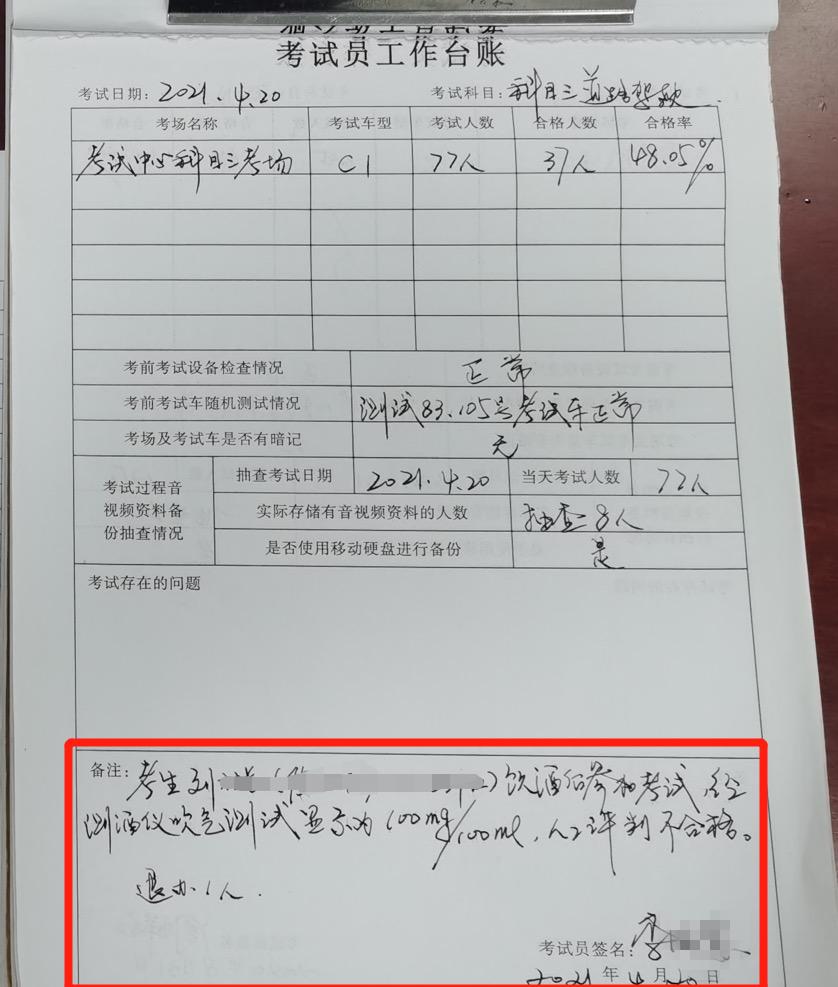 考试员工作台账
考试日期：2021.4.20 考试科目：科目三道路驾驶
考场名称 考试车型 考试人数 合格人数 合格率
考试中心科目三考场 C1 77人 37人 48.05%
考前考试设备检查情况 正常
考前考试车随机测试情况 测试83.105号考试车正常
考场及考试车是否有暗记 无
考试过程音视频资料备份抽查情况
抽查考试日期 2021.4.20 当天考试人数 77人
实际存储有音视频资料的人数 抽查：8人
是否使用移动硬盘进行备份 是
考试存在的问题
备注：考生刘 饮酒后参加考试，经
测酒仪吹气测试显示为100mg/100ml，人工评判不合格。
退办1人.
考试员签名：
2021年4月20日